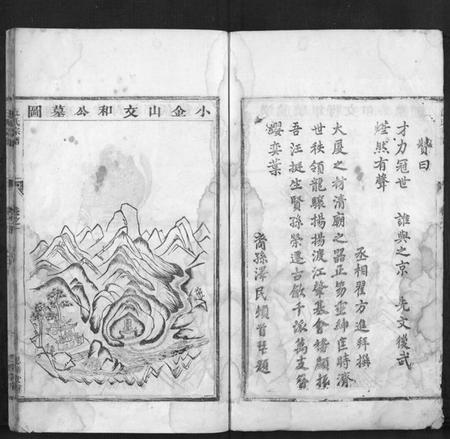 贊曰
才力冠世 誰與之京 先文後武
燁然有聲
丞相翟方進拜撰
大厦之材清廟之器正笏垂紳匡時濟
世秩領龍驤揚揚渡江發基會稽顯振
吾江挺生賢孫崇遷古歙千派萬支簪
纓奕葉
裔孫澤民頓首拜題
小金山文和公墓圖